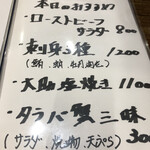 本日のおすすめ
・ローストビーフ
サラダ 800
・刺身3種 1200
・大助塩焼き 1100
・タラバ蟹三昧
(サラダ、焼物、天ぷら)